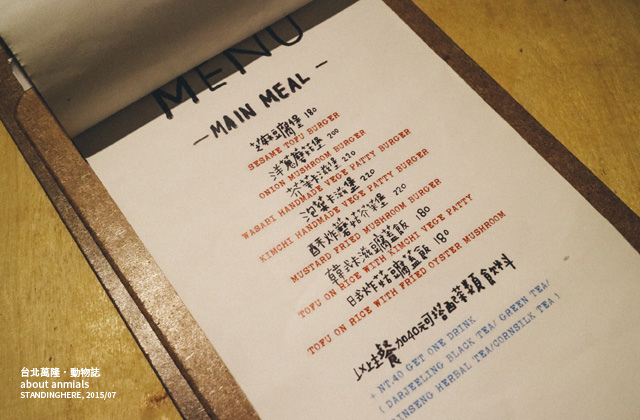 MENU
— MAIN MEAL —
芝麻豆腐堡 180
SESAME TOFU BURGER
洋蔥蘑菇堡 200
ONION MUSHROOM BURGER
芥茉卡滋堡 220
WASABI HANDMADE VEGE PATTY BURGER
泡菜卡滋堡 220
KIMCHI HANDMADE VEGE PATTY BURGER
酥炸蘑菇芥茉堡 220
MUSTARD FRIED MUSHROOM BURGER
韓式卡滋豆腐蓋飯 180
TOFU ON RICE WITH KIMCHI VEGE PATTY
日式炸菇豆腐蓋飯 180
TOFU ON RICE WITH FRIED OYSTER MUSHROOM
以上主餐加40元可搭配茶類飲料
+ NT.40 GET ONE DRINK
( DARJEELING BLACK TEA/ GREEN TEA/
GINSENG HERBAL TEA/CORNSILK TEA )
台北萬隆・動物誌
about anmials
STANDINGHERE, 2015/07